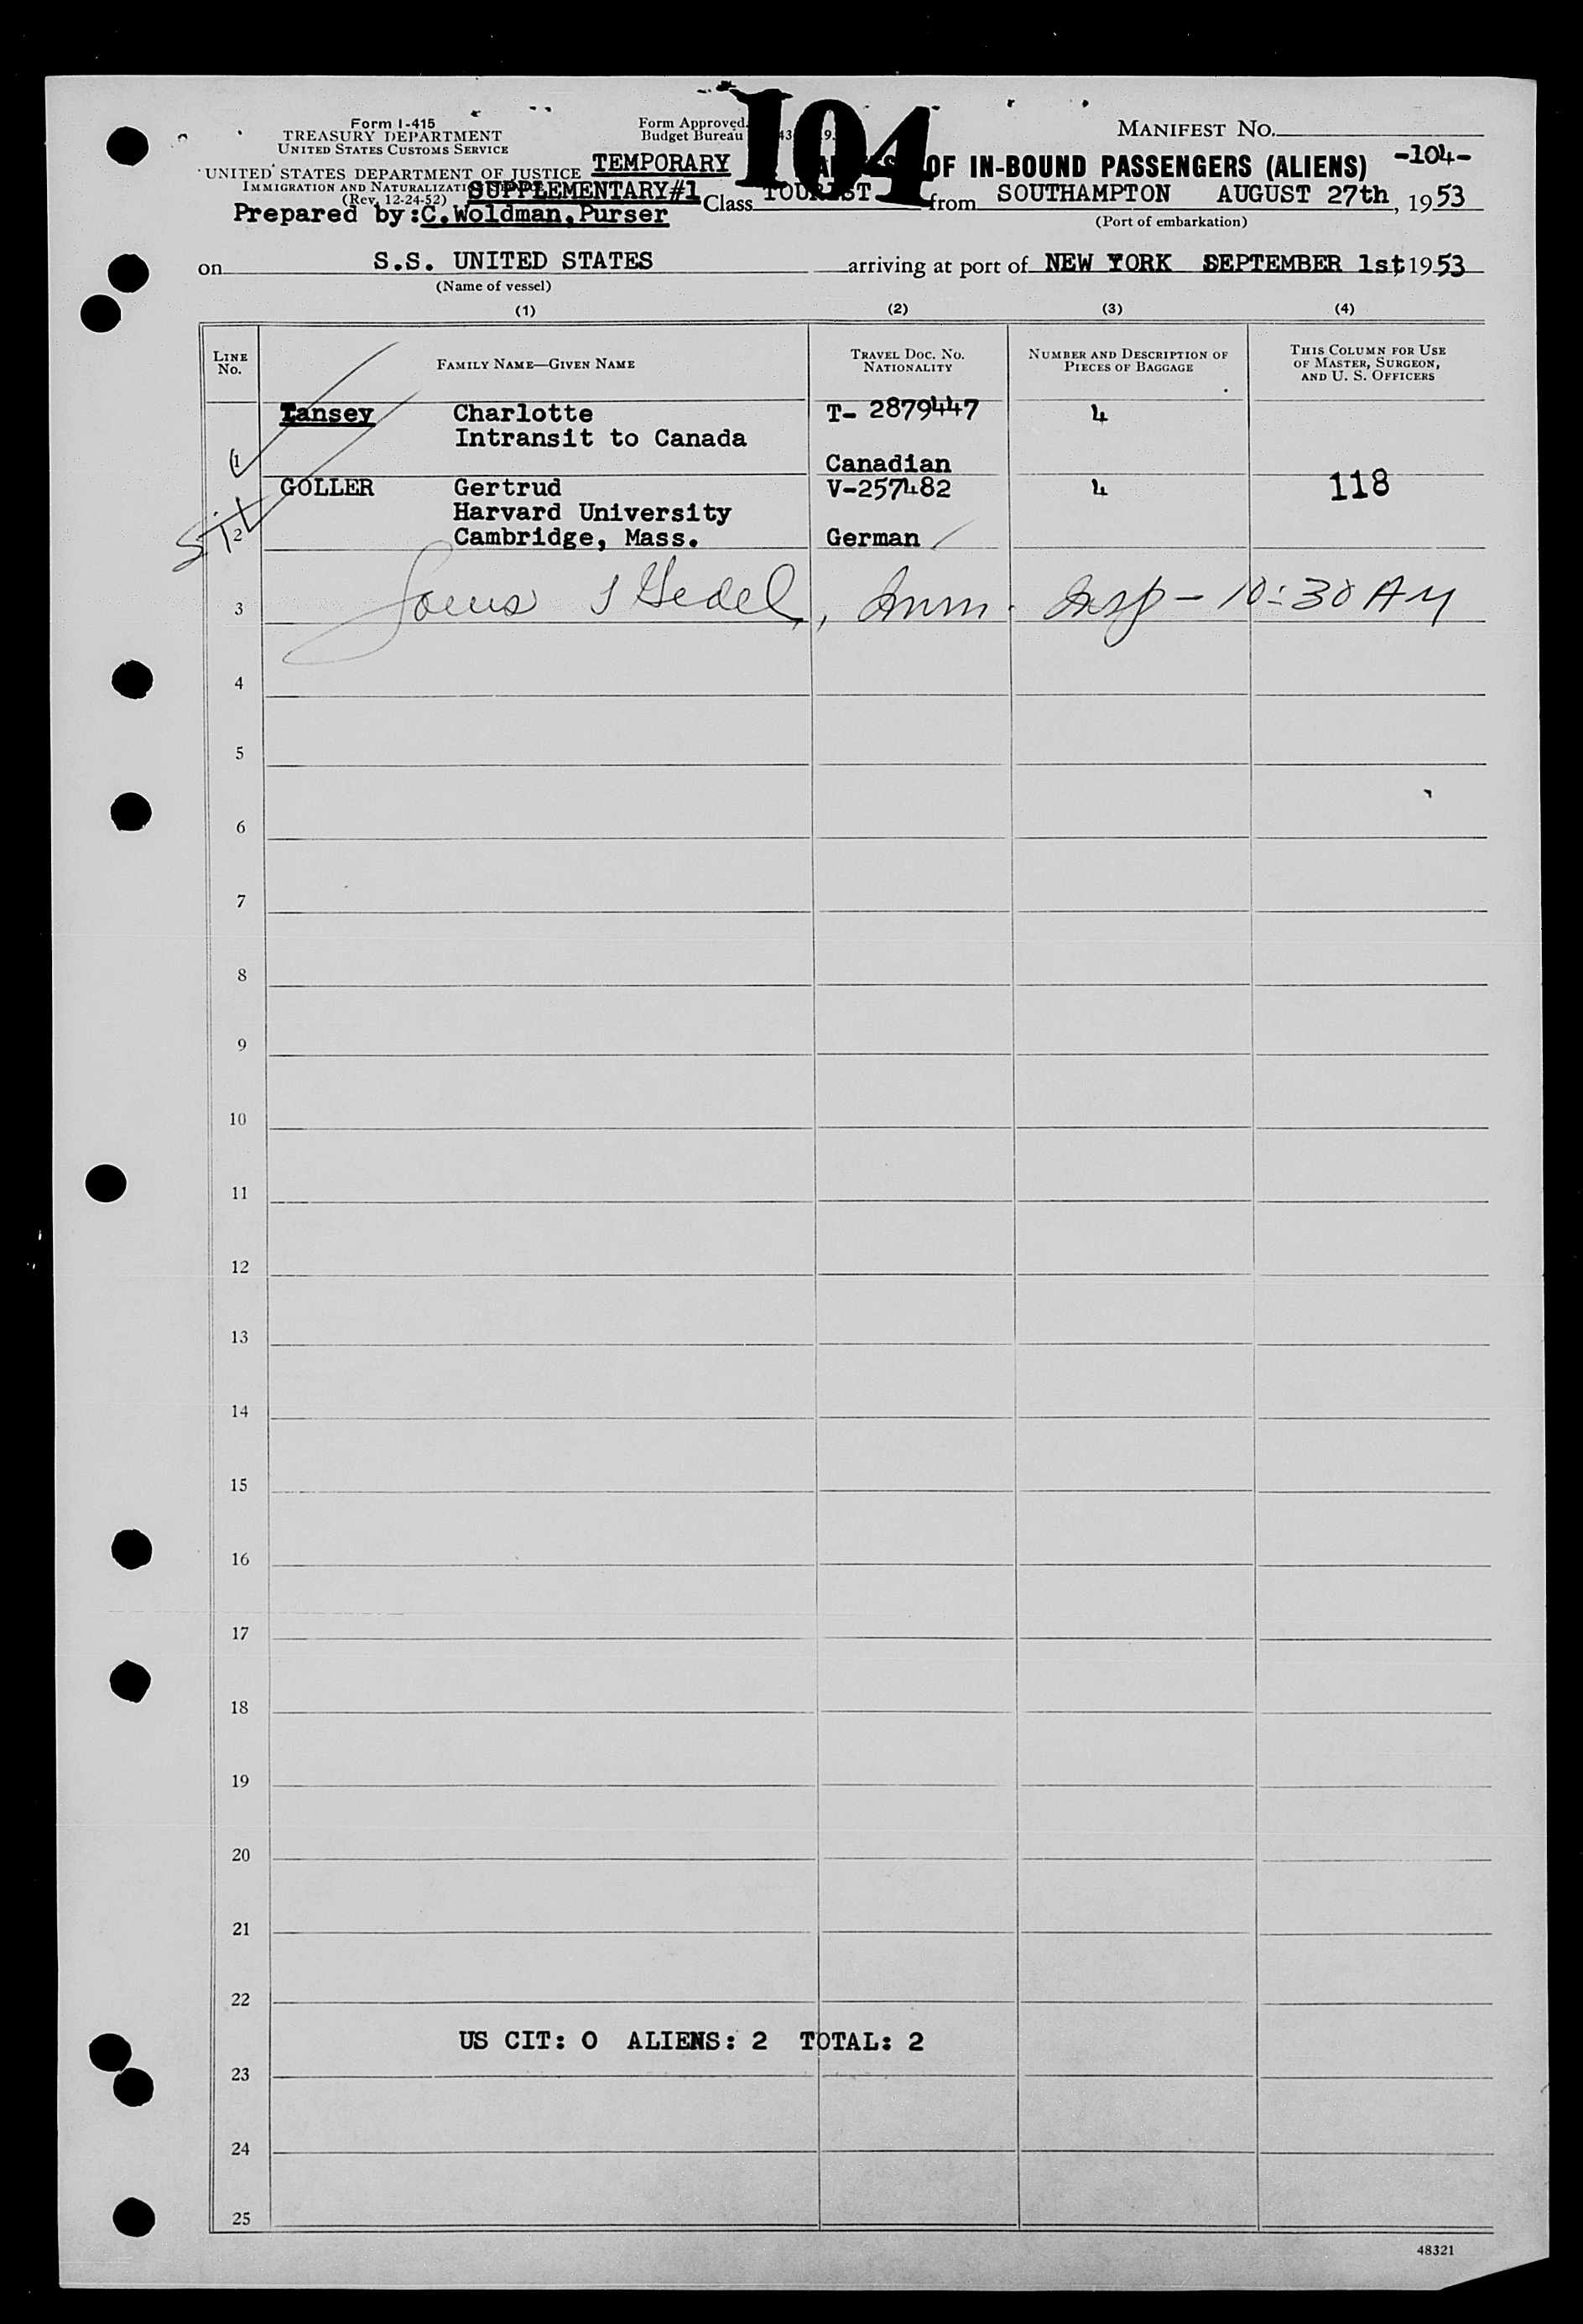 104
Form I-415
TREASURY DEPARTMENT
UNITED STATES CUSTOMS SERVICE
UNITED STATES DEPARTMENT OF JUSTICE
IMMIGRATION AND
(Rev. 12-24-52)
Form Approved.
Budget Bureau
MANIFEST No.
-104-
TEMPORARY OF IN-BOUND PASSENGERS (ALIENS)
SUPPLEMENTARY#1 Class TOURIST from SOUTHAMPTON AUGUST 27th, 1953
(Port of embarkation)
Prepared by:C.Woldman,Purser
on S.S. UNITED STATES arriving at port of NEW YORK SEPTEMBER 1st, 1953
(Name of vessel)
(1) (2) (3) (4)
LINE No. FAMILY NAME—GIVEN NAME TRAVEL DOC. NO. NATIONALITY NUMBER AND DESCRIPTION OF PIECES OF BAGGAGE THIS COLUMN FOR USE OF MASTER, SURGEON, AND U. S. OFFICERS
Tansey Charlotte T- 2879447 4
Intransit to Canada
1 Canadian
GOLLER Gertrud V-257482 4 118
Harvard University
2 Cambridge, Mass. German
3 Imm. Insp - 10:30 AM
4
5
6
7
8
9
10
11
12
13
14
15
16
17
18
19
20
21
22
US CIT: 0 ALIENS: 2 TOTAL: 2
23
24
25
48321